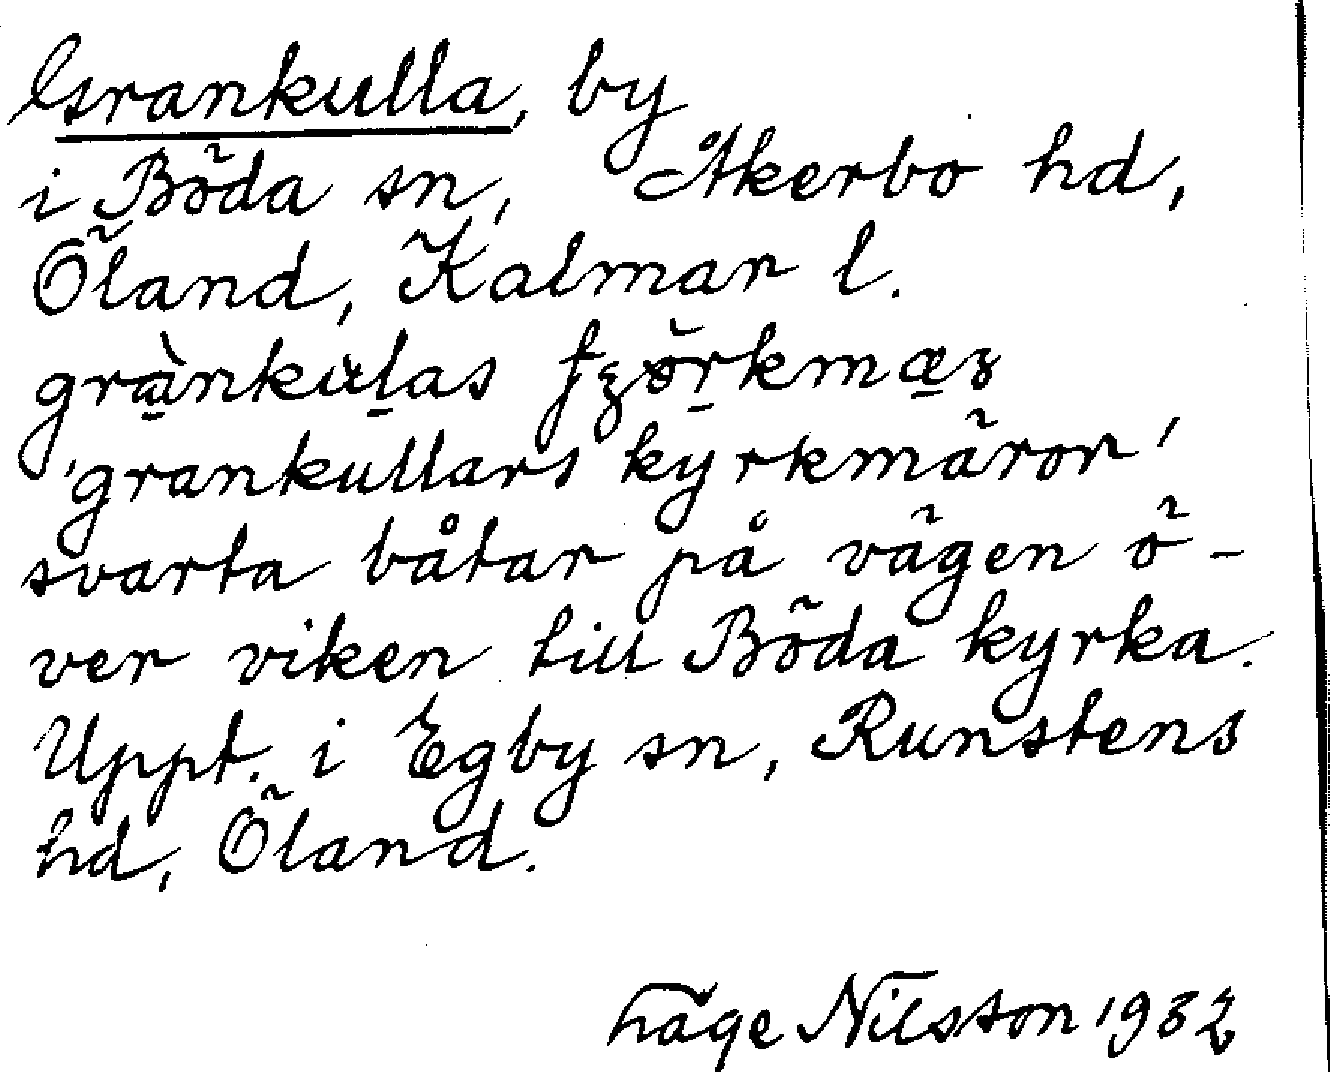 Grankulla, by
i Böda sn, Åkerbo hd,
Öland, Kalmar l.
grànkulas
'grankullars kyrkmäror'
svarta båtar på vägen ö-
ver viken till Böda kyrka.
Uppt. i Egby sn, Runstens
hd, Öland.
Tage Nilsson 1932